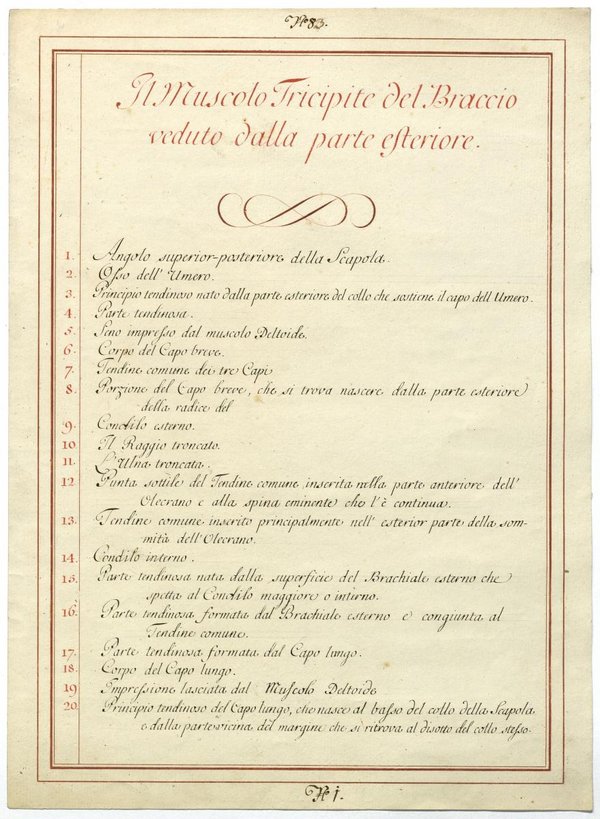 No 83.
Il Muscolo Tricipite del Braccio
veduto dalla parte esteriore.
1. Angolo superior-posteriore della Scapola.
2. Osso dell' Umero.
3. Principio tendinoso nato dalla parte esteriore del collo che sostiene il capo dell'Umero.
4. Parte tendinosa.
5. Seno impresso dal muscolo Deltoide.
6. Corpo del Capo breve.
7. Tendine comune dei tre Capi
8. Porzione del Capo breve, che si trova nascere dalla parte esteriore
della radice del
9. Condilo esterno.
10. Il Raggio troncato.
11. L'Ulna troncata.
12 Punta sottile del Tendine comune inserita nella parte anteriore dell'
Olecrano e alla spina eminente che l'è continua.
13. Tendine comune inserito principalmente nell' esterior parte della som-
mità dell'Olecrano.
14. Condilo interno.
15. Parte tendinosa nata dalla superficie del Brachiale esterno che
spetta al Condilo maggiore o interno.
16. Parte tendinosa formata dal Brachiale esterno e congiunta al
Tendine comune.
17. Parte tendinosa formata dal Capo lungo.
18. Corpo del Capo lungo.
19 Impressione lasciata dal Muscolo Deltoide
20. Principio tendinoso del Capo lungo, che nasce al basso del collo della Scapola
e dalla parte vicina del margine che si ritrova al disotto del collo stesso.
No 1.